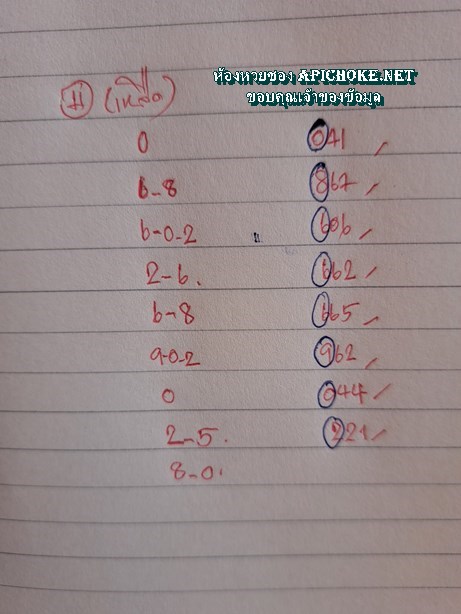 ห้องหวยซอง APICHOKE.NET
ขอบคุณเจ้าของข้อมูล
H (เหลือ)
0 071
6-8 867
6-0-2 606
2-6. 662
6-8 665
9-0-2 962
0 044
2-5. 221
8-0.